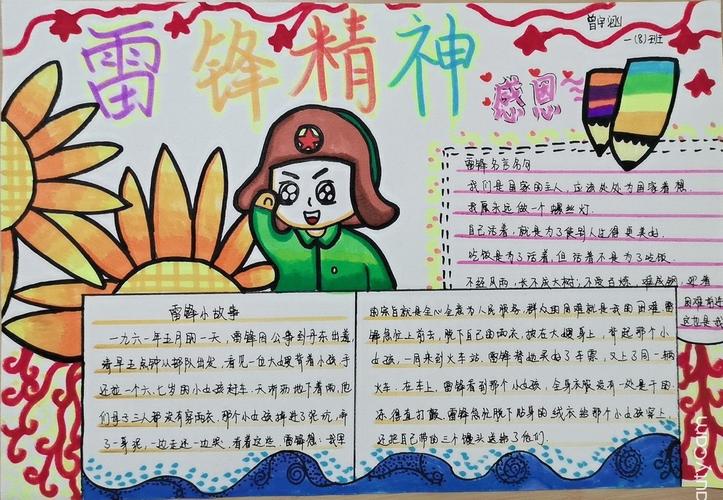 雷锋精神
感恩
一(8)班
雷锋名言名句
我们是国家的主人，应该处处为国家着想.
我愿永远做一个螺丝灯.
自己活着，就是为了使别人过得更美好.
吃饭是为了活着，但活着不是为了吃饭.
不经风雨，长不成大树；不受百炼，难成钢.迎着
困难前进
这也是我
雷锋小故事
一九六一年五月的一天，雷锋因公事到丹东出差，
清早五点钟从部队出发，看见一位大嫂背着小孩，手
还拉一个六、七岁的小女孩赶车.天哗哗地下着雨，他
们母子三人都没有穿雨衣.那个小女孩掉进了泥坑，弄
了一身泥，一边走还一边哭.看着这些，雷锋想：我男
的宗旨就是全心全意为人民服务，群人的困难就是我的困难.雷
锋急忙上前去，脱下自己的雨衣，披在大嫂身上，背起那个小
女孩，一同来到火车站.雷锋替她买好了车票，又上了同一辆
火车.在车上，雷锋看到那个小女孩，全身衣服没有一处是干的.
冻得直打颤.雷锋急忙脱下贴身的线衣给那个小女孩穿上，
还把自己带的三个馒头送给了他们.